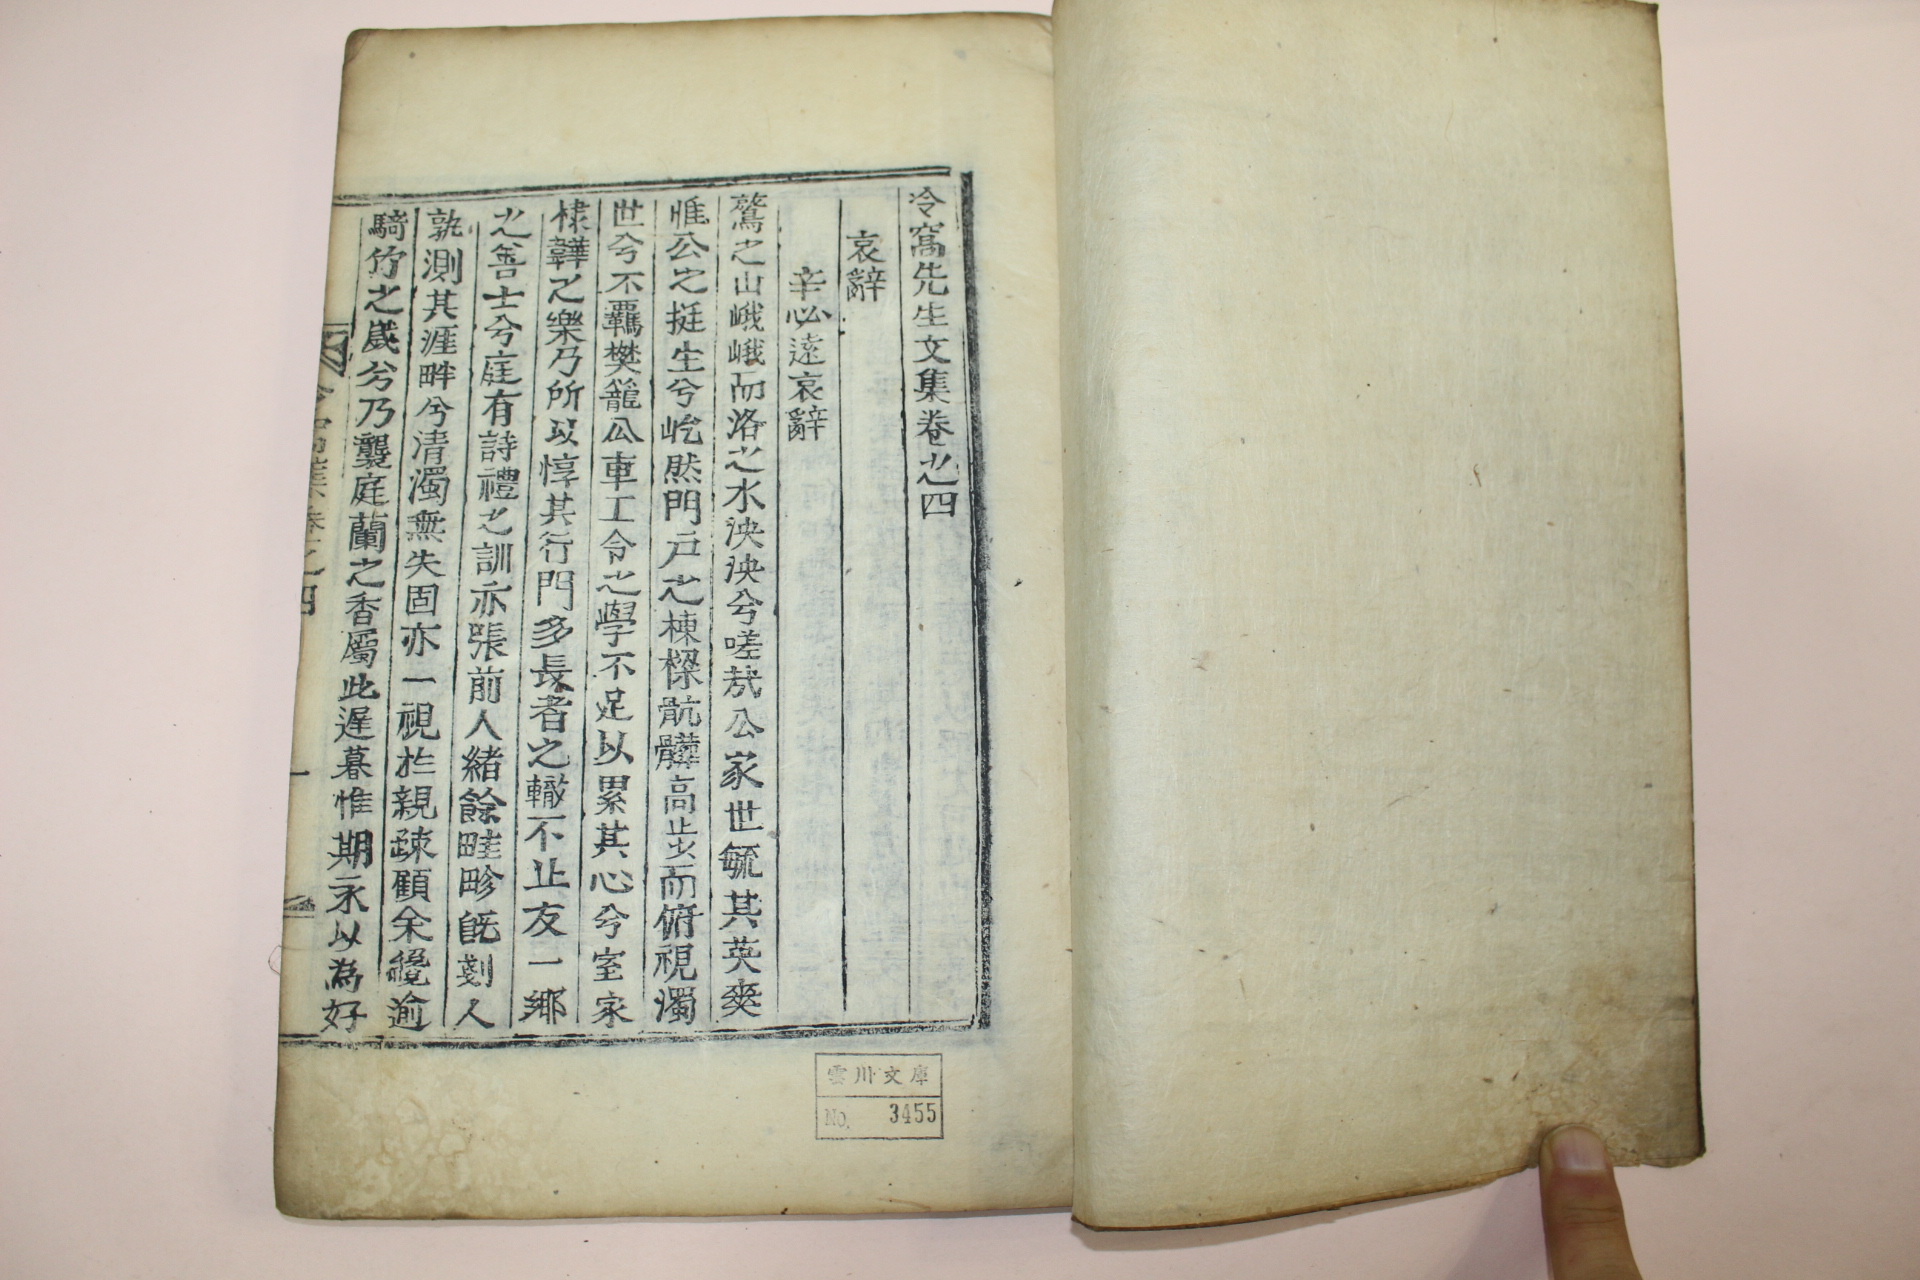 冷窩先生文集卷之四
哀辭
辛必遠哀辭
鷲之山峨峨而洛之水泱泱兮嗟哉公家世毓其英爽
惟公之挺生兮屹然門戶之棟樑骯髒高步而俯視濁
世兮不羈樊籠公車工令之學不足以累其心兮室家
棣韡之樂乃所以惇其行門多長者之轍不止友一鄉
之善士兮庭有詩禮之訓亦張前人緒餘畦畛旣剗人
孰測其涯畔兮清濁無失固亦一視於親疎顧余纔逾
騎竹之歲兮乃襲庭蘭之香屬此遲暮惟期永以為好
冷窩集卷之四
一
雲川文庫
No. 3455